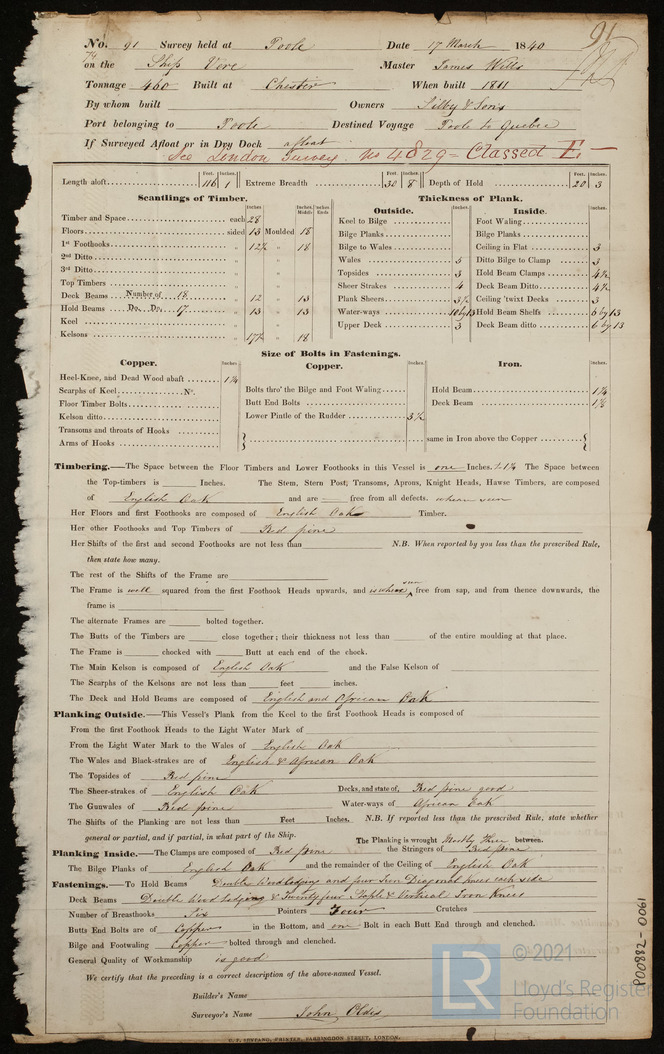 91
No. 91 Survey held at Poole Date 17 March 1840
on the Ship Vere Master James Wills
Tonnage 460 Built at Chester When built 1811
By whom built Owners Silby & Sons
Port belonging to Poole Destined Voyage Poole to Quebec
If Surveyed Afloat or in Dry Dock afloat
See London Survey No 4829 = Classed E. —
Length aloft 116 1 Extreme Breadth 30 8 Depth of Hold 20 3
Feet. Inches. Feet. Inches. Feet. Inches.
Scantlings of Timber.
Inches. Inches. Middle Inches. Ends
Timber and Space each 28
Floors sided 13 Moulded 18
1st Foothooks " 12½ " 18
2nd Ditto " "
3rd Ditto " "
Top Timbers " "
Deck Beams Number of 18 " 12 " 13
Hold Beams Do. Do. 17 " 13 " 13
Keel " "
Kelsons " 17½ " 18
Thickness of Plank.
Outside. Inches.
Keel to Bilge
Bilge Planks
Bilge to Wales
Wales 5
Topsides 3
Sheer Strakes 4
Plank Sheers 3½
Water-ways 10 by 13
Upper Deck 3
Inside. Inches.
Foot Waling
Bilge Planks
Ceiling in Flat 3
Ditto Bilge to Clamp 3
Hold Beam Clamps 4½
Deck Beam Ditto 4½
Ceiling 'twixt Decks 3
Hold Beam Shelfs 6 by 13
Deck Beam ditto 6 by 13
Size of Bolts in Fastenings.
Copper. Inches.
Heel-Knee, and Dead Wood abaft 1¼
Scarphs of Keel No.
Floor Timber Bolts
Kelson ditto
Transoms and throats of Hooks
Arms of Hooks
Copper. Inches.
Bolts thro' the Bilge and Foot Waling
Butt End Bolts
Lower Pintle of the Rudder 3½
Iron. Inches.
Hold Beam 1¼
Deck Beam 1⅛
same in Iron above the Copper
Timbering.—The Space between the Floor Timbers and Lower Foothooks in this Vessel is one Inches. The Space between
the Top-timbers is Inches. The Stem, Stern Post, Transoms, Aprons, Knight Heads, Hawse Timbers, are composed
of English Oak and are free from all defects. where seen
Her Floors and first Foothooks are composed of English Oak Timber.
Her other Foothooks and Top Timbers of Red pine
Her Shifts of the first and second Foothooks are not less than N.B. When reported by you less than the prescribed Rule,
then state how many.
The rest of the Shifts of the Frame are
The Frame is well squared from the first Foothook Heads upwards, and is where seen free from sap, and from thence downwards, the
frame is
The alternate Frames are bolted together.
The Butts of the Timbers are close together; their thickness not less than of the entire moulding at that place.
The Frame is chocked with Butt at each end of the chock.
The Main Kelson is composed of English Oak and the False Kelson of
The Scarphs of the Kelsons are not less than feet inches.
The Deck and Hold Beams are composed of English and African Oak
Planking Outside.—This Vessel's Plank from the Keel to the first Foothook Heads is composed of
From the first Foothook Heads to the Light Water Mark of
From the Light Water Mark to the Wales of English Oak
The Wales and Black-strakes are of English & African Oak
The Topsides of Red pine
The Sheer-strakes of English Oak Decks, and state of, Red pine good
The Gunwales of Red pine Water-ways of African Oak
The Shifts of the Planking are not less than Feet Inches. N.B. If reported less than the prescribed Rule, state whether
general or partial, and if partial, in what part of the Ship. The Planking is wrought Mostly Three between.
Planking Inside.—The Clamps are composed of Red pine the Stringers of Red pine
The Bilge Planks of English Oak and the remainder of the Ceiling of English Oak
Fastenings.—To Hold Beams Double Wood lodging and four Iron Diagonal knees each side
Deck Beams Double Wood Lodging & Twenty four Staple & Vertical Iron Knees
Number of Breasthooks Six Pointers Four Crutches
Butts End Bolts are of Copper in the Bottom, and one Bolt in each Butt End through and clenched.
Bilge and Footwaling Copper bolted through and clenched.
General Quality of Workmanship is good
We certify that the preceding is a correct description of the above-named Vessel.
Builder's Name
Surveyor's Name John Oldis
PRINTER, FARRINGDON STREET, LONDON.
P00882-0061
LR
© 2021
Lloyd's Register
Foundation